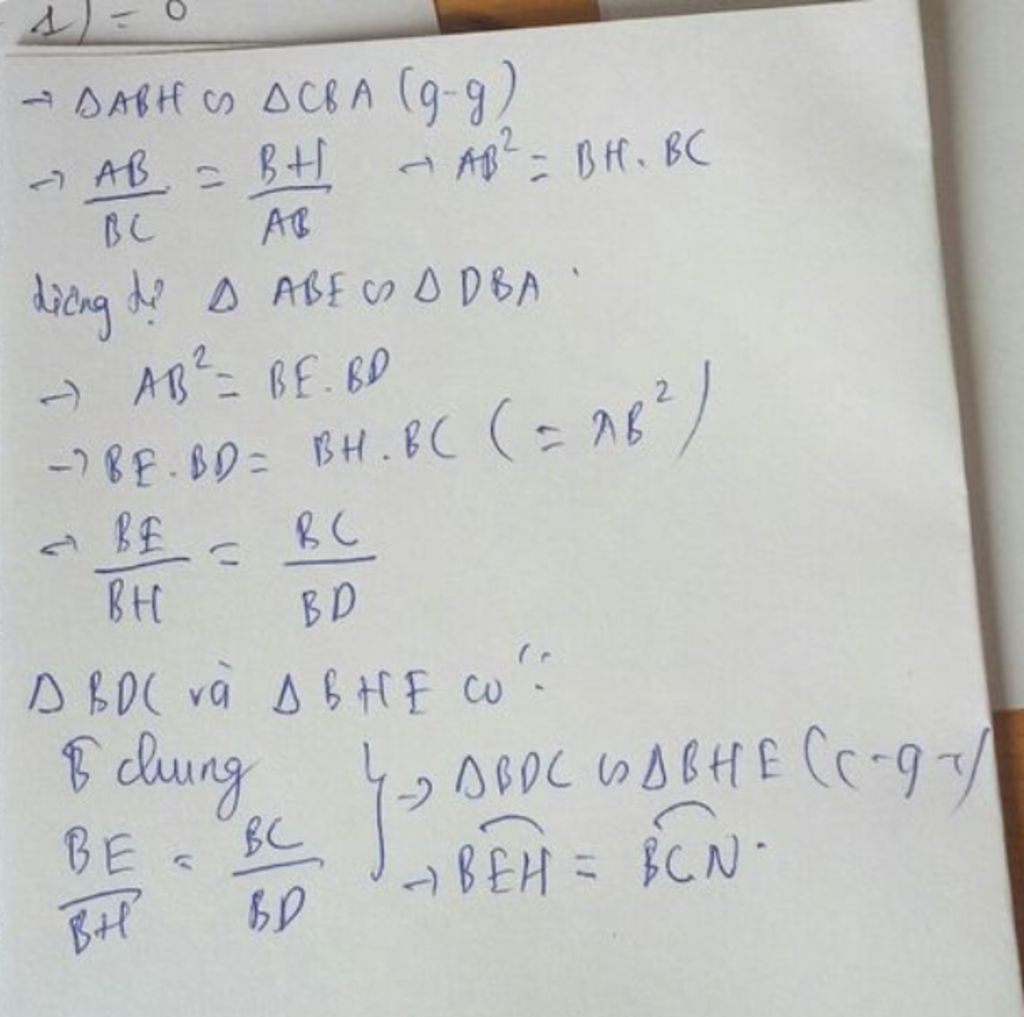 1) = 0
→ ΔABH ∽ ΔCBA (g-g)
→ AB/BC = BH/AB → AB² = BH . BC
Δ ABE ∽ Δ DBA
→ AB² = BE . BD
→ BE . BD = BH . BC ( = AB² )
→ BE/BH = BC/BD
Δ BDC và Δ BHE có :
B̂ chung
→ ΔBDC ∽ ΔBHE (c-g-c)
BE/BH = BC/BD
→ BEH = BCN.